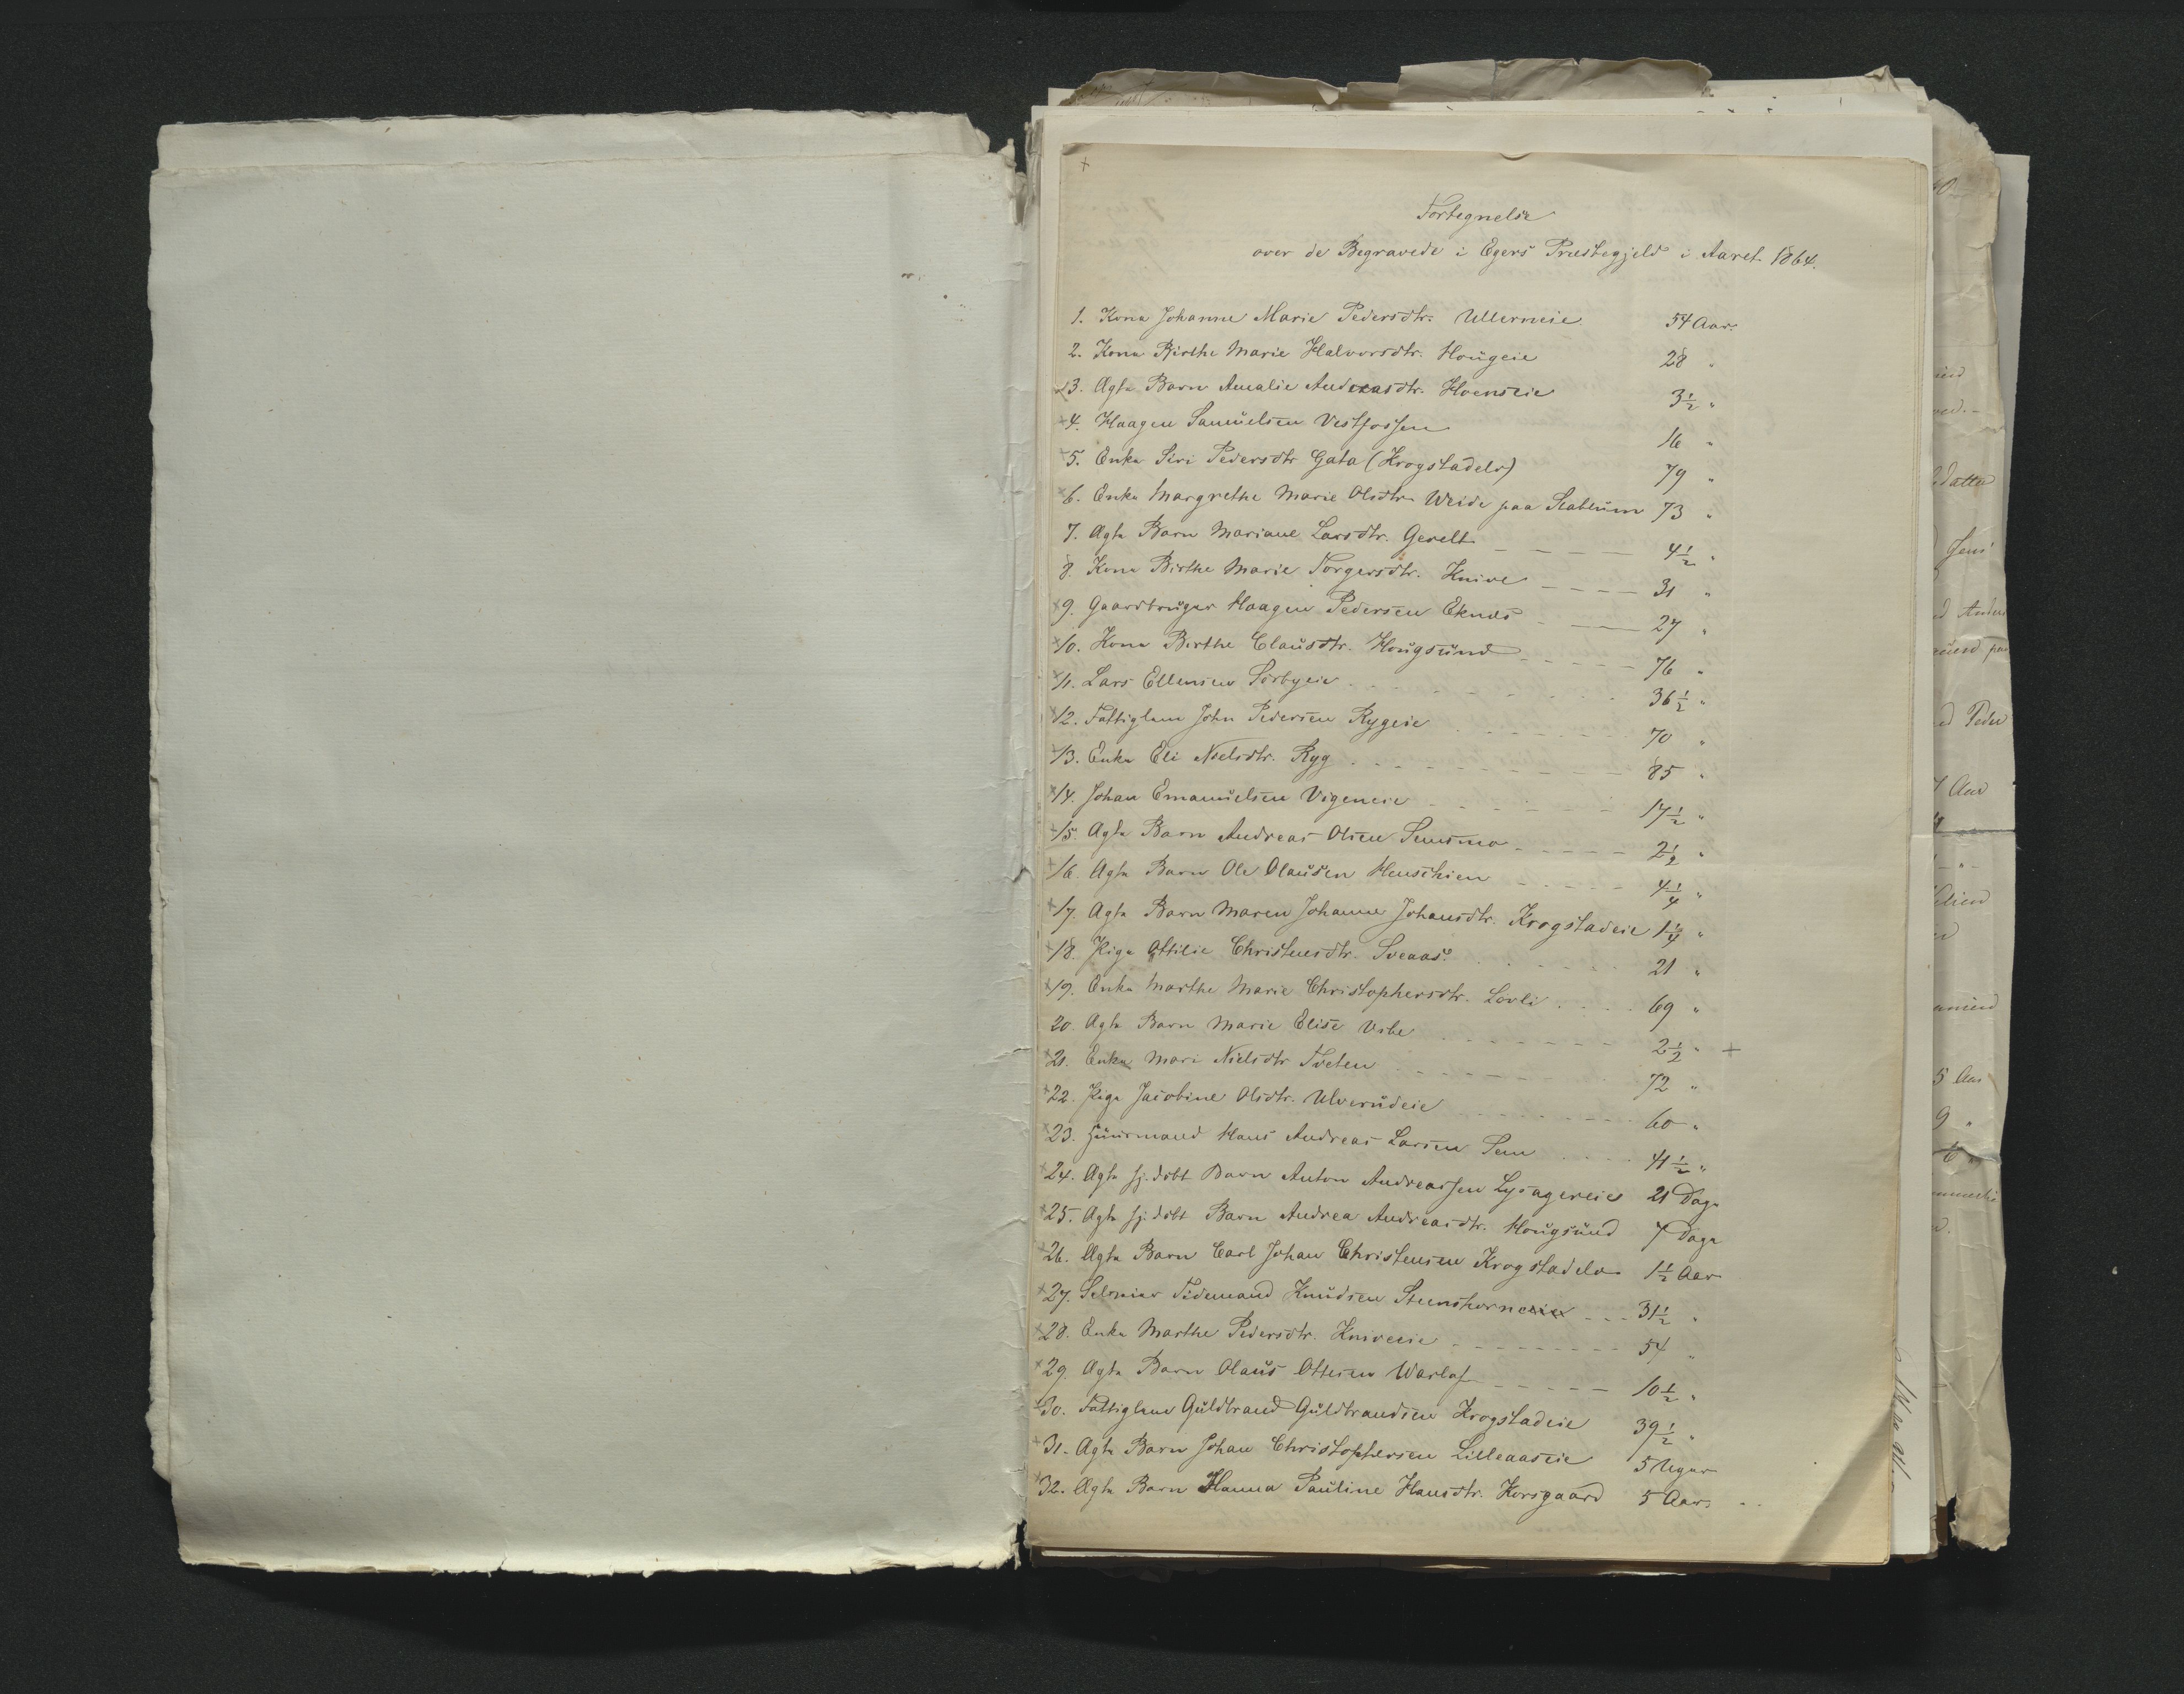 Fortegnelse
over de Begravede i Egers Præstegjeld i Aaret 1864.
1. Kona Johanne Marie Pedersdtr. Ullerneie 54 Aar.
2. Kona Birthe Marie Halvorsdtr. Hougeie 28 "
3. Ægte Barn Amalie Andreasdtr. Hoenseie 3½ "
4. Haagen Samuelsen Vestfossen 16 "
5. Enke Siri Pedersdtr Gata (Krogstadelv) 79 "
6. Enke Margrethe Marie Olsdtr. Weide paa Stablum 73 "
7. Ægte Barn Mariane Larsdtr. Gevelt 4½ "
8. Kona Birthe Marie Torgersdtr. Knive 31 "
9. Gaardbruger Haagen Pedersen Eknæs 27 "
10. Kona Birthe Clausdtr. Hougsund 76 "
11. Lars Ellensen Sørbyeie 36½ "
12. Fattiglem John Pedersen Rygeie 70 "
13. Enke Eli Nielsdtr. Ryg 85 "
14. Johan Emanuelsen Vigeneie 17½ "
15. Ægte Barn Andreas Olsen Semsmo 2½ "
16. Ægte Barn Ole Olausen 4¼ "
17. Ægte Barn Maren Johanne Johansdtr. Krogstadeie 1¼ "
18. Pige Ottilie Christensdtr. Sveaas 21 "
19. Enke Marthe Marie Christophersdtr. Lovli 69 "
20. Ægte Barn Marie Elise Vebe 2½ " +
21. Enke Mari Nielsdtr Tveten 72 "
22. Pige Jacobine Olsdtr. Ulverudeie 60 "
23. Huusmand Hans Andreas Larsen Sem 41½ "
24. Ægte hj. døbt Barn Anton Andreassen Lysagereie 21 Dage
25. Ægte hj. døbt Barn Andrea Andreasdtr. Hougsund 7 Dage
26. Ægte Barn Carl Johan Christensen Krogstadelv 1½ Aar
27. Selveier Tidemand Knudsen Steenshorn 31½ "
28. Enke Marthe Pedersdtr. Kniveeie 54 "
29. Ægte Barn Olaus Ottersen Varlo 10½ "
30. Fattiglem Guldbrand Guldbrandsen Krogstadeie 39½ "
31. Ægte Barn Johan Christophersen Lilleaaseie 5 Uger
32. Ægte Barn Hanna Pauline Hansdtr. Korsgaard 5 Aar.